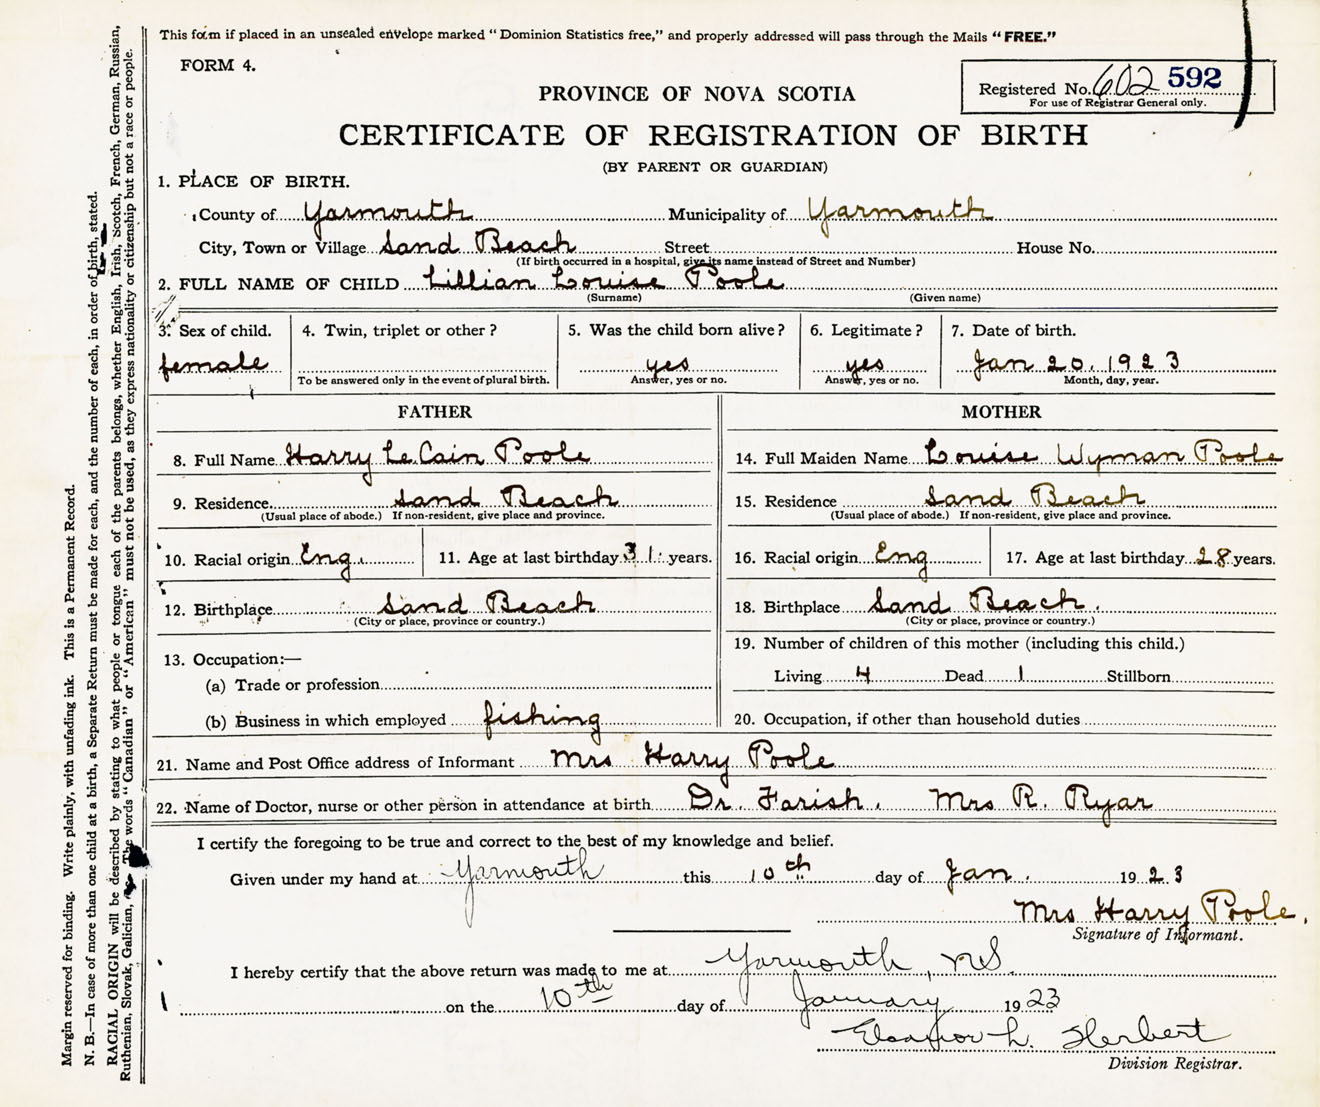 This form if placed in an unsealed envelope marked "Dominion Statistics free," and properly addressed will pass through the Mails "FREE."
FORM 4.
Registered No. 602 592
For use of Registrar General only.
PROVINCE OF NOVA SCOTIA
CERTIFICATE OF REGISTRATION OF BIRTH
(BY PARENT OR GUARDIAN)
1. PLACE OF BIRTH.
County of Yarmouth Municipality of Yarmouth
City, Town or Village Sand Beach Street House No.
(If birth occurred in a hospital, give its name instead of Street and Number)
2. FULL NAME OF CHILD Lillian Louise Poole
(Surname) (Given name)
3. Sex of child. 4. Twin, triplet or other? 5. Was the child born alive? 6. Legitimate? 7. Date of birth.
female yes yes Jan 20, 1923
To be answered only in the event of plural birth. Answer, yes or no. Answer, yes or no. Month, day, year.
FATHER MOTHER
8. Full Name Harry Le.Cain Poole 14. Full Maiden Name Louise Wyman Poole
9. Residence Sand Beach 15. Residence Sand Beach
(Usual place of abode.) If non-resident, give place and province. (Usual place of abode.) If non-resident, give place and province.
10. Racial origin Eng. 11. Age at last birthday 31 years. 16. Racial origin Eng 17. Age at last birthday 28 years.
12. Birthplace Sand Beach 18. Birthplace Sand Beach.
(City or place, province or country.) (City or place, province or country.)
19. Number of children of this mother (including this child.)
13. Occupation:—
Living 4 Dead 1 Stillborn
(a) Trade or profession
(b) Business in which employed fishing 20. Occupation, if other than household duties
21. Name and Post Office address of Informant Mrs Harry Poole
22. Name of Doctor, nurse or other person in attendance at birth Dr. Farish. Mrs R. Ryar
I certify the foregoing to be true and correct to the best of my knowledge and belief.
Given under my hand at Yarmouth this 10th day of Jan. 1923
Mrs Harry Poole.
Signature of Informant.
I hereby certify that the above return was made to me at Yarmouth, N.S.
on the 10th day of January 1923
Eleanor L. Herbert
Division Registrar.
Margin reserved for binding. Write plainly, with unfading ink. This is a Permanent Record.
N. B.—In case of more than one child at a birth, a Separate Return must be made for each, and the number of each, in order of birth, stated.
RACIAL ORIGIN will be described by stating to what people or tongue each of the parents belongs, whether English, Irish, Scotch, French, German, Russian,
Ruthenian, Slovak, Galician, The words "Canadian" or "American" must not be used, as they express nationality or citizenship but not a race or people.